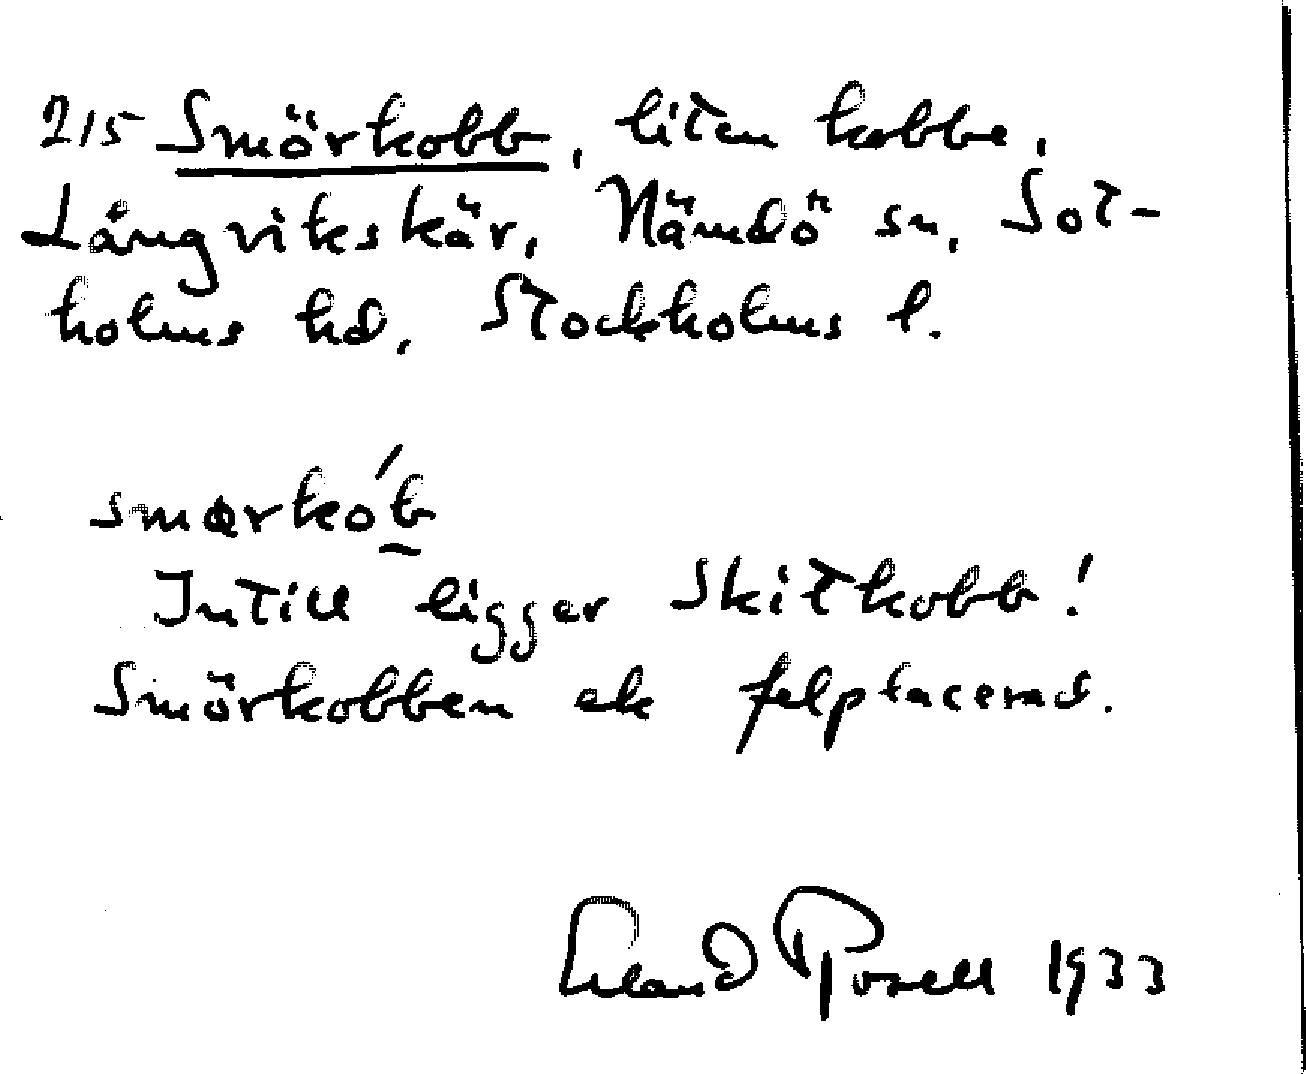 215 Smörkobb, liten kobbe,
Långvikskär, Nämdö sn, Sot-
holms hd, Stockholms l.
smørkó̱b
Intill ligger Skitkobb!
Smörkobben ek felplacerad.
Erland Rosell 1933